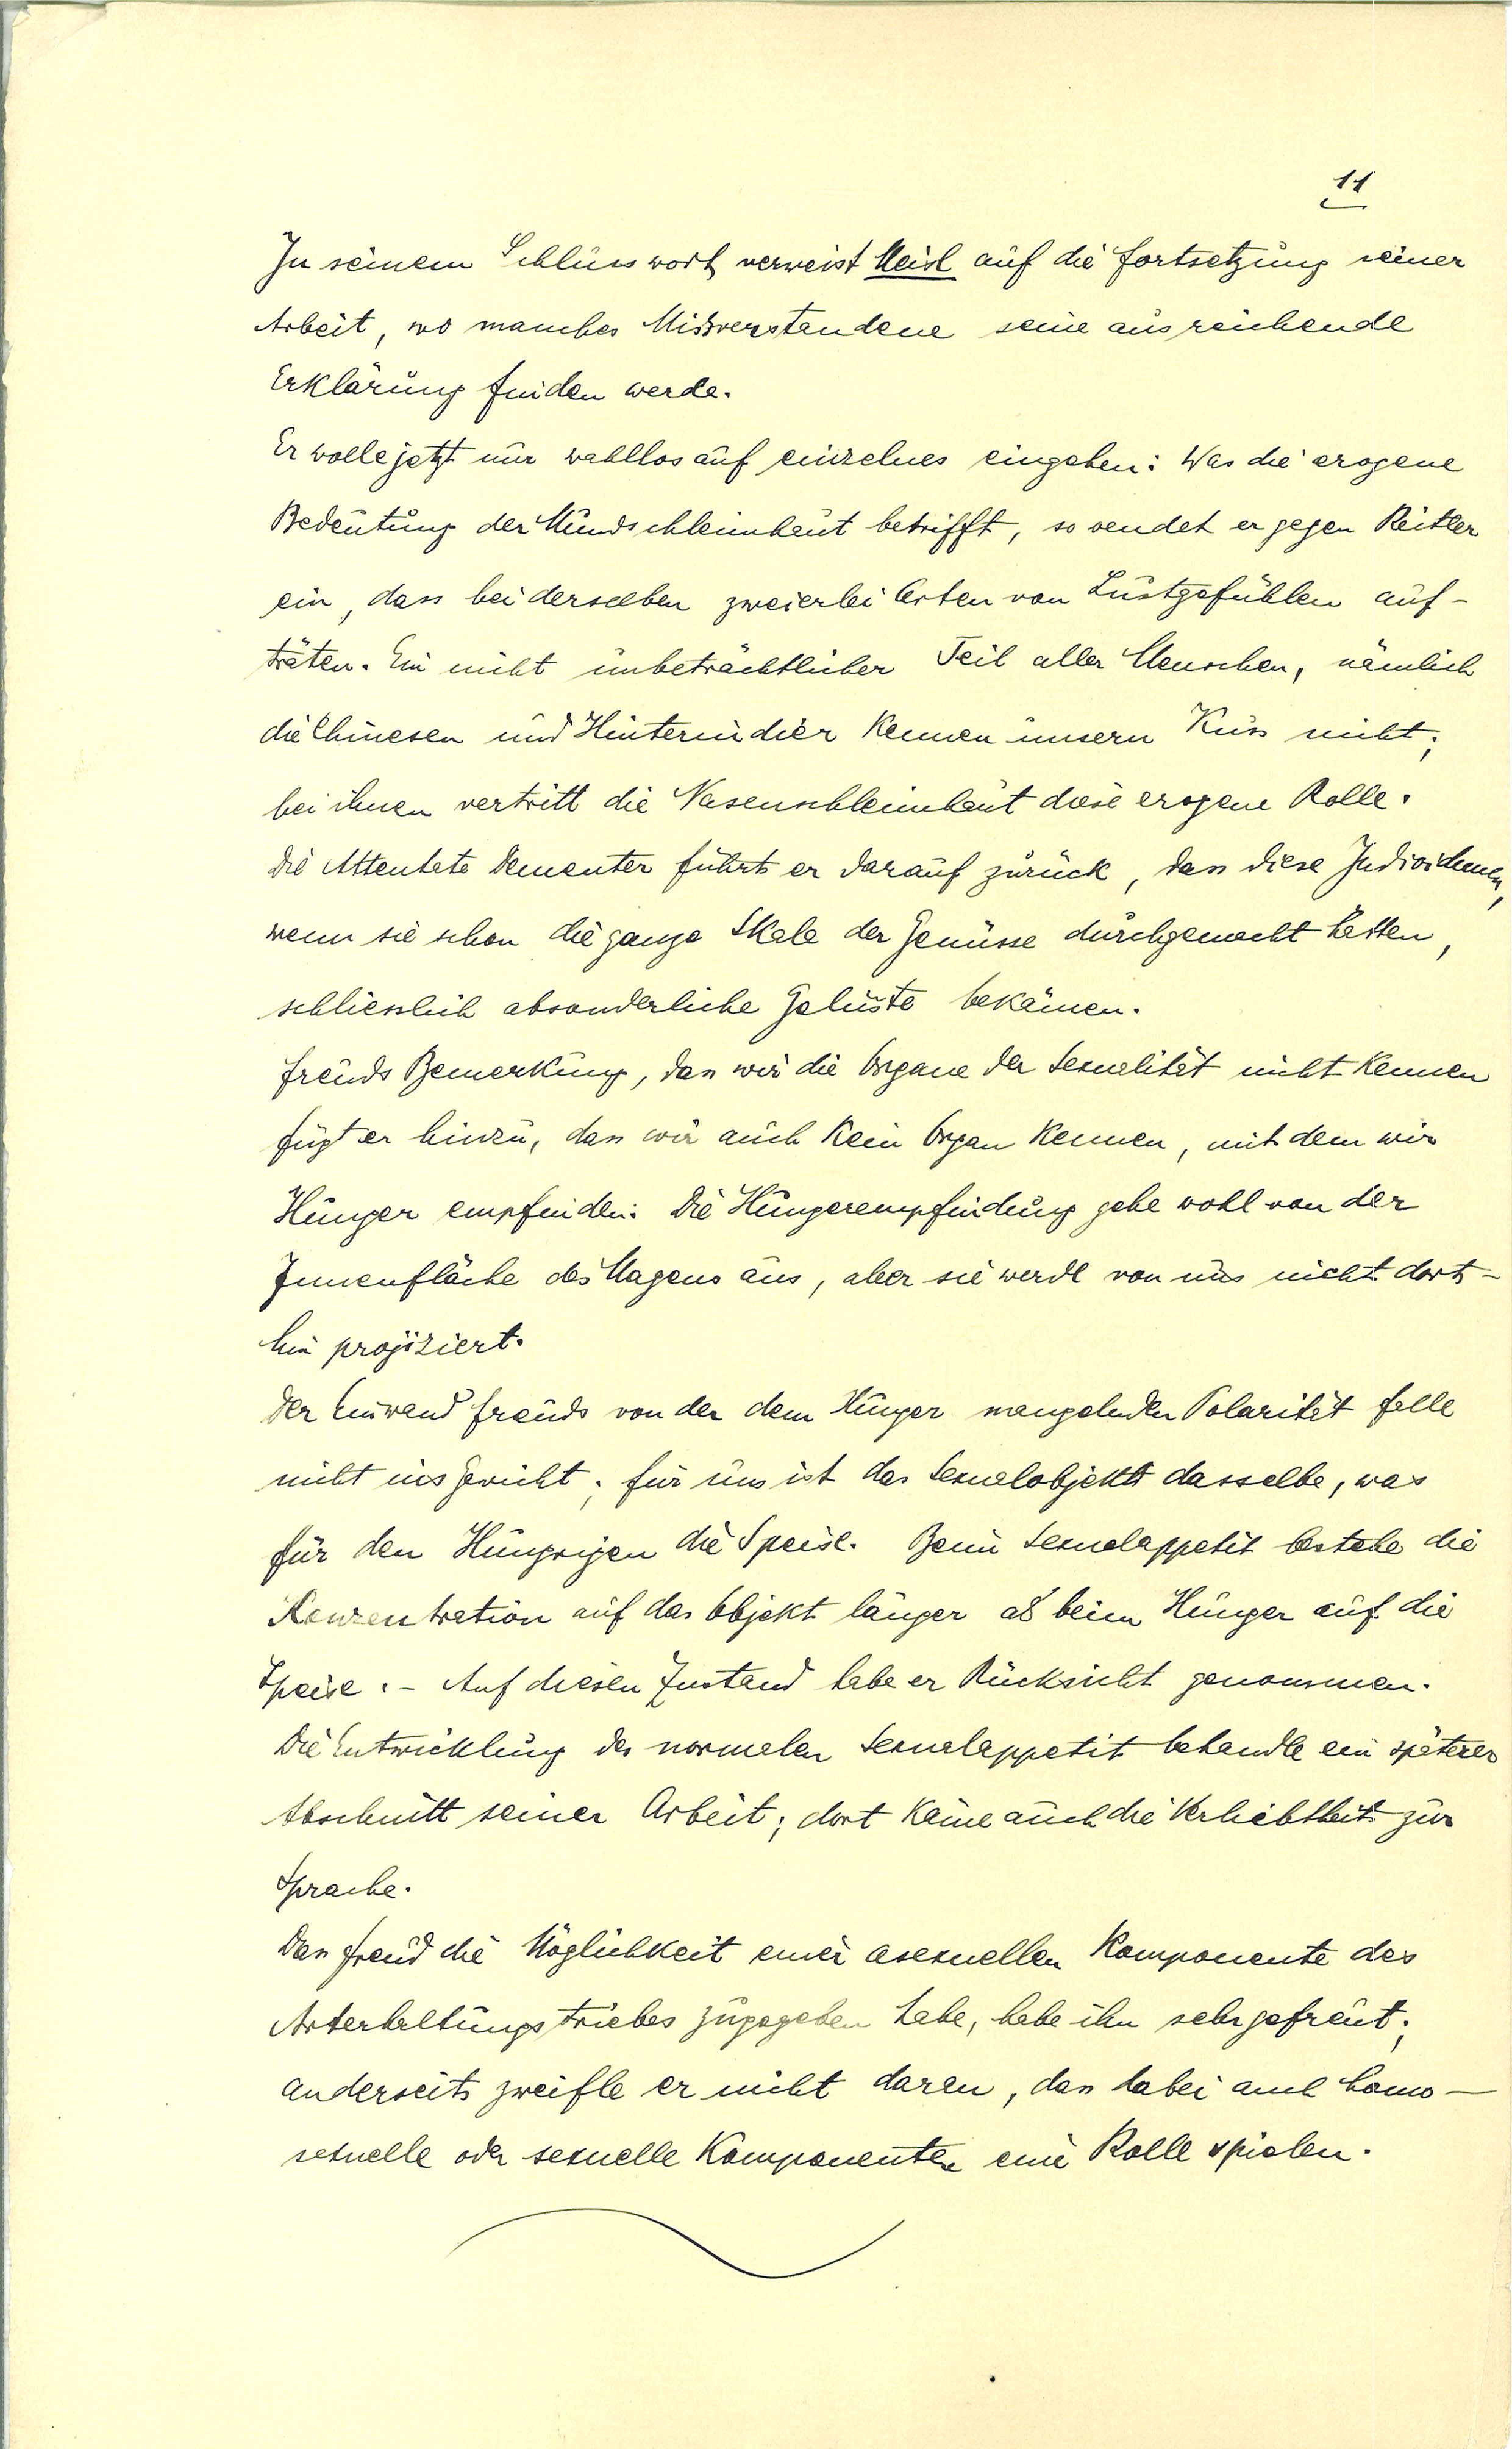 11
In seinem Schlusswort verweist Meisl auf die Fortsetzung seiner
Arbeit, wo manches Missverstandene seine ausreichende
Erklärung finden werde.
Er wolle jetzt nur wahllos auf einzelnes eingehen: Was die erogene
Bedeutung der Mundschleimhaut betrifft, so wendet er gegen Reitler
ein, dass bei derselben zweierlei Arten von Lustgefühlen auf-
träten. Ein nicht unbeträchtlicher Teil aller Menschen, nämlich
die Chinesen und Hinterindier kennen unsern Kuss nicht;
bei ihnen vertritt die Nasenschleimhaut diese erogene Rolle.
Die Attentate Dementer führt er darauf zurück, dass diese Individuen,
wenn sie schon die ganze Skala der Genüsse durchgemacht hätten,
schliesslich absonderliche Gelüste bekämen.
Freuds Bemerkung, dass wir die Organe der Sexualität nicht kennen
fügt er hinzu, dass wir auch kein Organ kennen, mit dem wir
Hunger empfinden: Die Hungerempfindung gehe wohl von der
Innenfläche des Magens aus, aber sie werde von uns nicht dort-
hin projiziert.
Der Einwand Freuds von der dem Hunger mangelnden Polarität falle
nicht ins Gewicht; für uns ist das Sexualobjekt dasselbe, was
für den Hungrigen die Speise. Beim Sexualappetit bestehe die
Konzentration auf das Objekt länger als beim Hunger auf die
Speise. – Auf diesen Zustand habe er Rücksicht genommen.
Die Entwicklung des normalen Sexualappetit behandle ein späterer
Abschnitt seiner Arbeit; dort käme auch die Verliebtheit zur
Sprache.
Dass Freud die Möglichkeit einer asexuellen Komponente des
Arterhaltungstriebes zugegeben habe, habe ihn sehr gefreut;
anderseits zweifle er nicht daran, dass dabei auch homo-
sexuelle oder sexuelle Komponenten eine Rolle spielen.